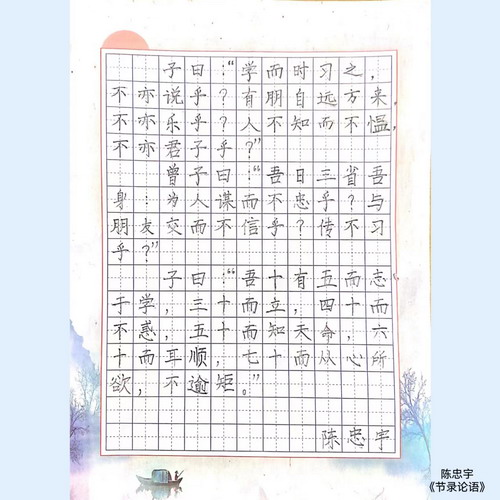 子曰：“学而时习之，
不亦说乎？有朋自远方来，
不亦乐乎？人不知而不愠，
不亦君子乎？”
曾子曰：“吾日三省吾
身：为人谋而不忠乎？与
朋友交而不信乎？传不习
乎？”
子曰：“吾十有五而志
于学，三十而立，四十而
不惑，五十而知天命，六
十而耳顺，七十而从心所
欲，不逾矩。”
陈忠宇
陈忠宇
《节录论语》